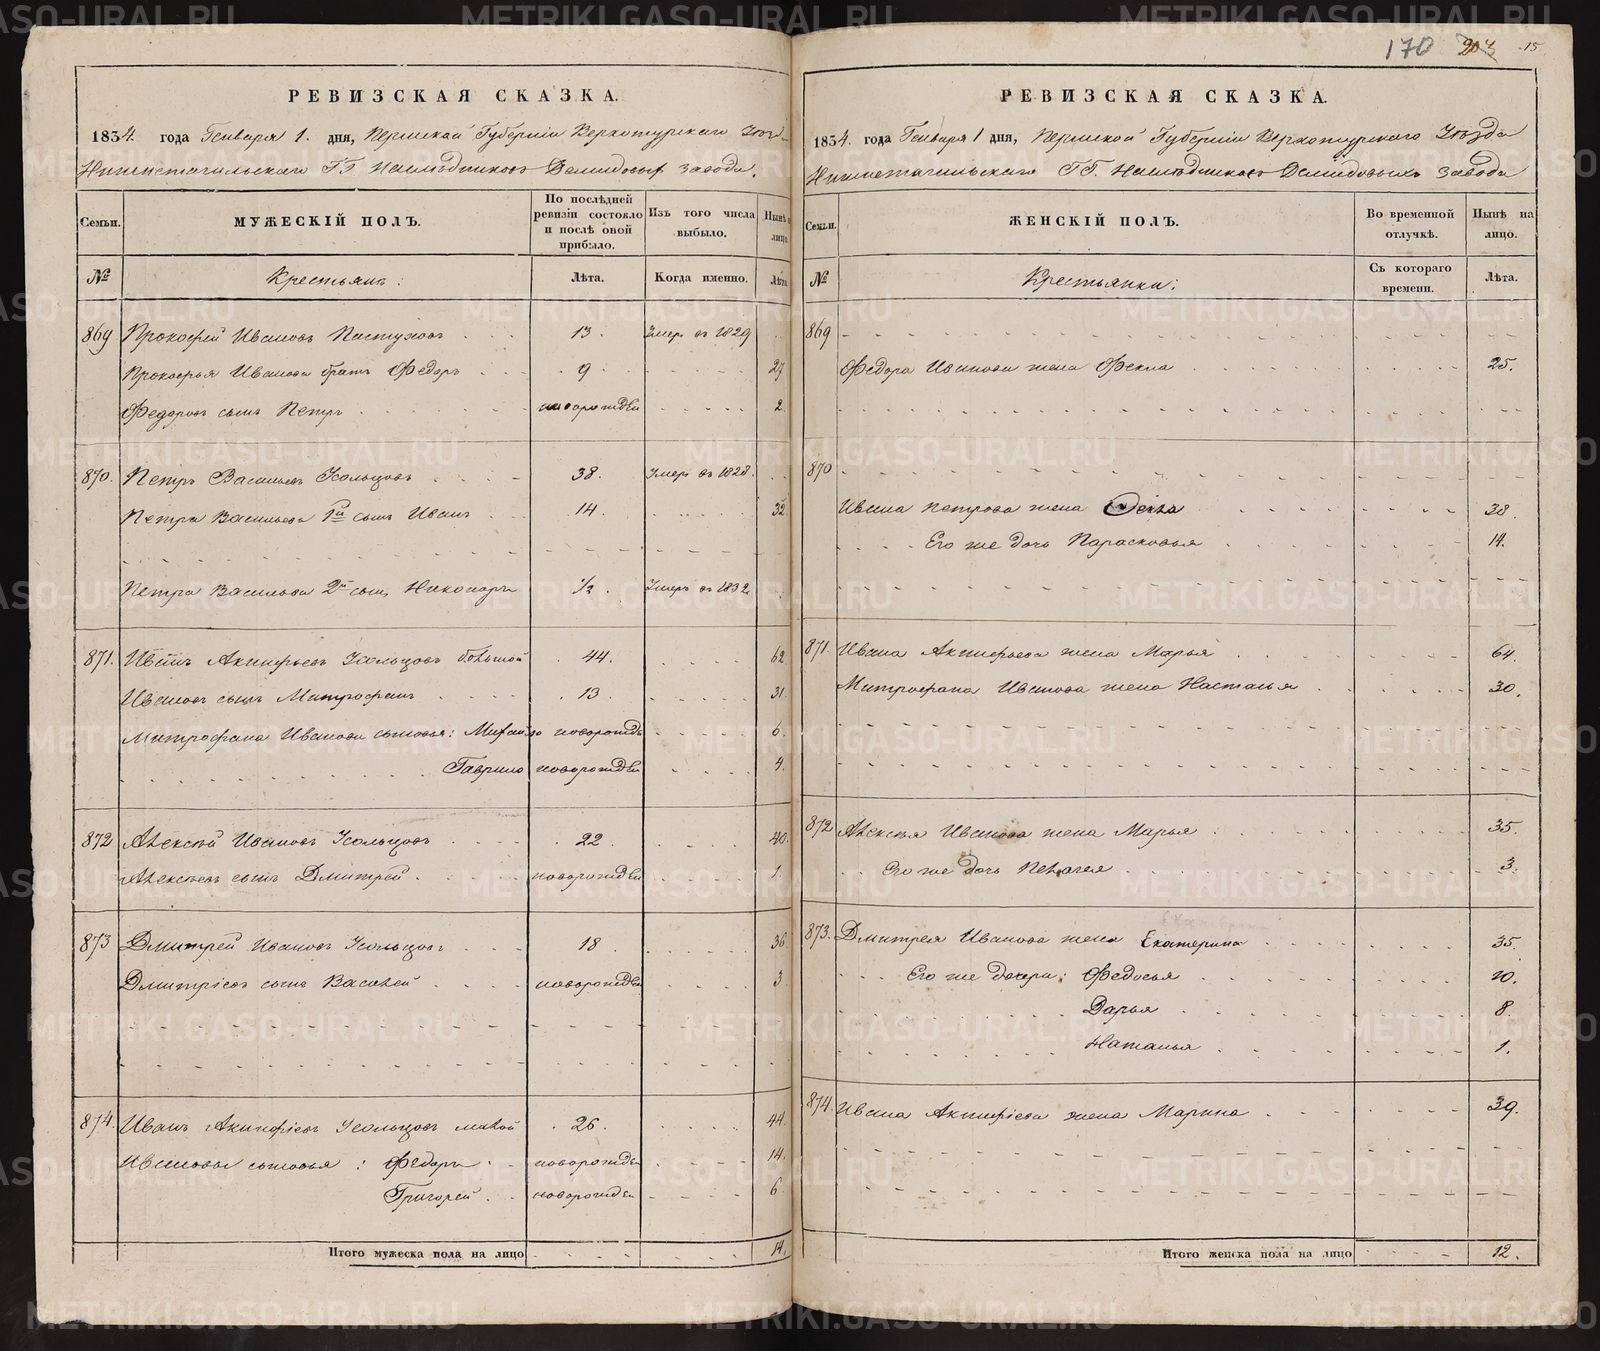 170 204 15
РЕВИЗСКАЯ СКАЗКА.
1834. года Генваря 1. дня, Пермской Губерніи Верхотурскаго Уѣз-
Нижнетагильскаго ГГ. Наслѣдниковъ Демидовыхъ завода.
Семьи.
МУЖЕСКІЙ ПОЛЪ.
По послѣдней ревизіи состояло и послѣ оной прибыло.
Изъ того числа выбыло.
Нынѣ лицо
№
Крестьянъ:
Лѣта.
Когда именно.
Лѣта
869 Прокофей Ивановъ Пастуховъ 13. Умеръ въ 1829
Прокофья Иванова братъ Федоръ 9. 27
Федоровъ сынъ Петръ новорожден 2
870. Петръ Васильевъ Усольцовъ 38. Умеръ въ 1828.
Петра Васильева 1й сынъ Иванъ 14. 32
Петра Васильева 2й сынъ Никоноръ 1/2. Умеръ въ 1832
871. Иванъ Акинфьевъ Усольцовъ большой 44. 62
Ивановъ сынъ Митрофанъ 13 31.
Митрофана Иванова сыновья: Михайло новорожде 6.
Гаврило новорожден 4.
872 Алексѣй Ивановъ Усольцовъ 22. 40.
Алексѣевъ сынъ Дмитрей новорожден 1.
873 Дмитрей Ивановъ Усольцовъ 18. 36
Дмитріевъ сынъ Василей новорожден 3
874. Иванъ Акинфіевъ Усольцовъ малой 26. 44.
Ивановы сыновья: Федоръ новорожден 14.
Григорей новорожден 6
Итого мужеска пола на лицо 14.
РЕВИЗСКАЯ СКАЗКА.
1834. года Генваря 1 дня, Пермской Губерніи Верхотурскаго Уѣзда
Нижнетагильскаго ГГ. Наслѣдниковъ Демидовыхъ завода
Семьи.
ЖЕНСКІЙ ПОЛЪ.
Во временной отлучкѣ.
Нынѣ на лицо.
№
Крестьянки:
Съ котораго времени.
Лѣта.
869
Федора Иванова жена Фекла 25.
870
Ивана Петрова жена Фекла 38.
Его же дочь Парасковья 14.
871. Ивана Акинфьева жена Марья 64.
Митрофана Иванова жена Настасья 30.
872 Алексѣя Иванова жена Марья 35.
Его же дочь Пелагея 3.
873. Дмитрея Иванова жена Екатерина 35.
Его же дочери: Федосья 10.
Дарья 8
Наталья 1.
874. Ивана Акинфіева жена Марина 39.
Итого женска пола на лицо 12.
METRIKI.GASO-URAL.RU